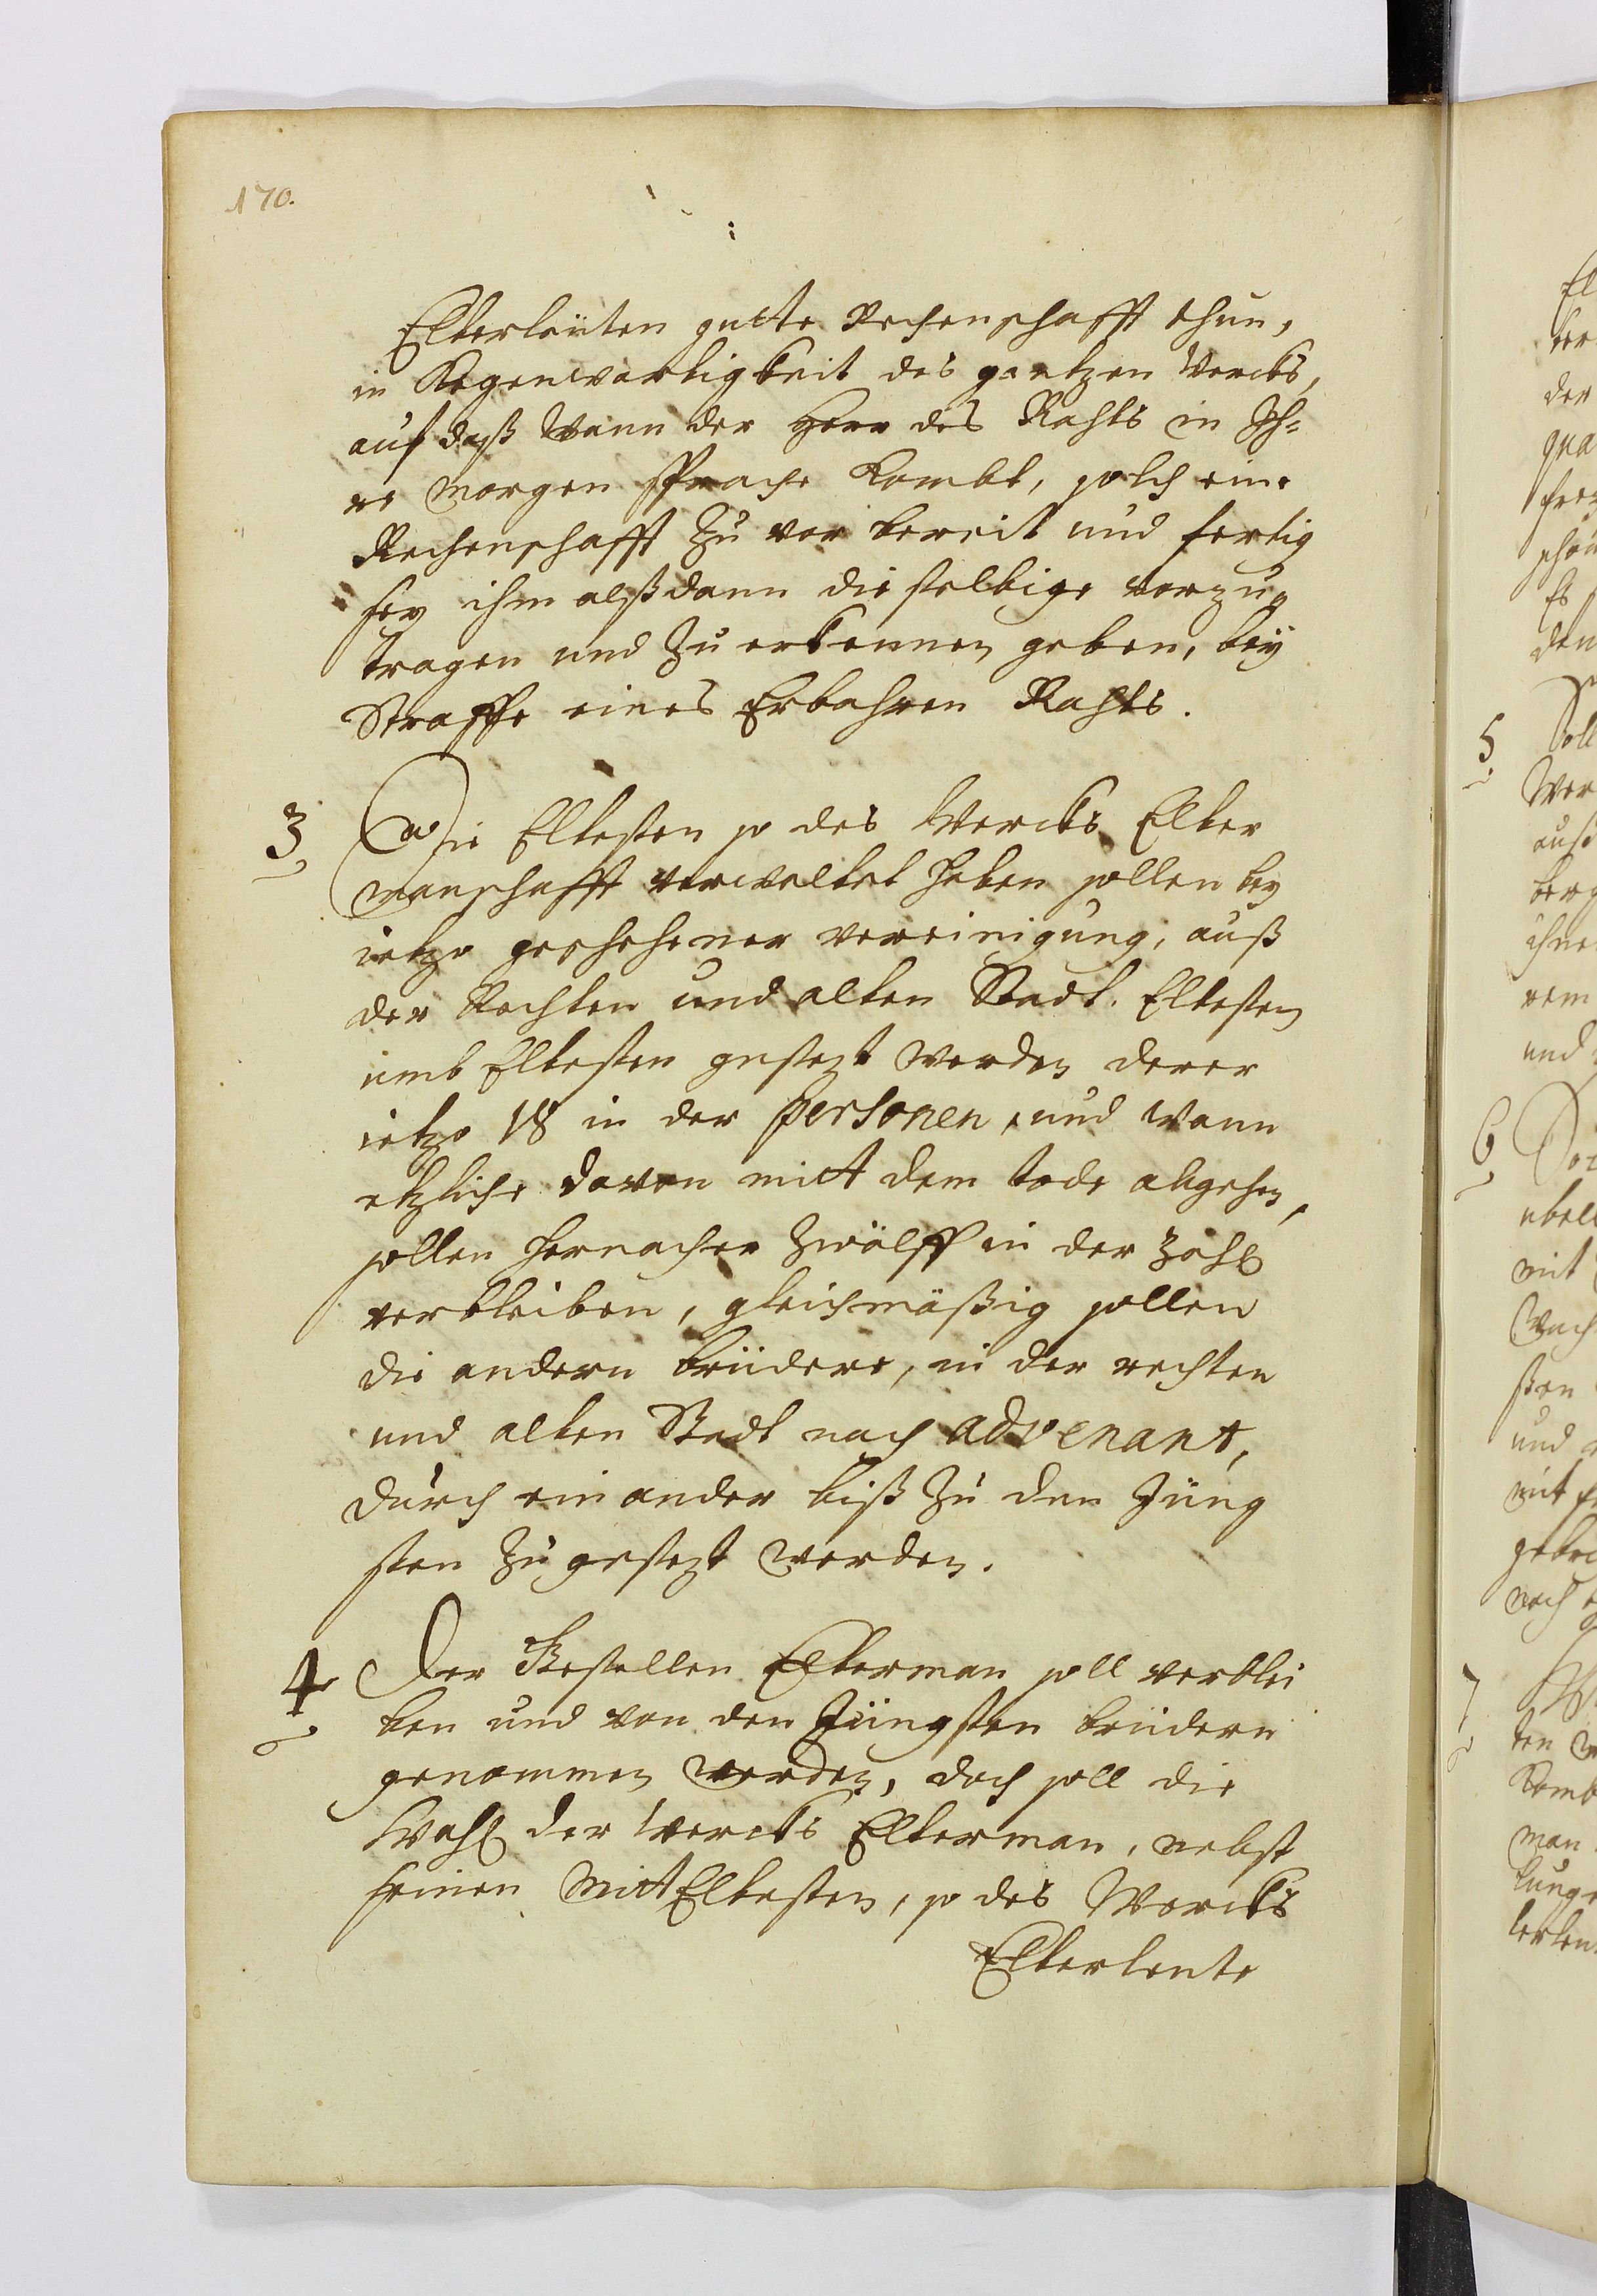 170.
Elterleüten gutte Rechenschafft thun,
in Kegenwartigkeit des gantzen Wercks,
auf daß Wann der Herr des Rahts in Ih=
re morgen sprache kombt, solch eine
Rechenschafft zu vor bereit und fertig
sey ihm alßdann die selbige vorzu
tragen und zu erkennen geben, beÿ
Straffe eines Erbahren Rahts.
3 Die Eltesten so des Wercks Elter
manschafft verwaltet haben sollen bey
ietzo geschehener vereinigung, auß
der Rechten und alten Stadt. Eltesten
umb Eltesten gesezt werden derer
ietzo 18 in der Personen, und wann
etzliche davon mitt dem tode abgehen,
sollen hernacher zwölff in der Zahl
verbleiben, gleichmäßig sollen
die andern brüdere, in der rechten
und alten Stadt nach advenant,
durch ein ander biß zu den Jüng
sten zu gesezt werden.
4 Der Gesellen Elterman soll verblei
ben und von den Jüngsten brüdern
genommen werden, doch soll die
Wahl der Wercks Elterman, nebst
seinen MittEltesten, so des Wercks
Elterleute
5
6
7